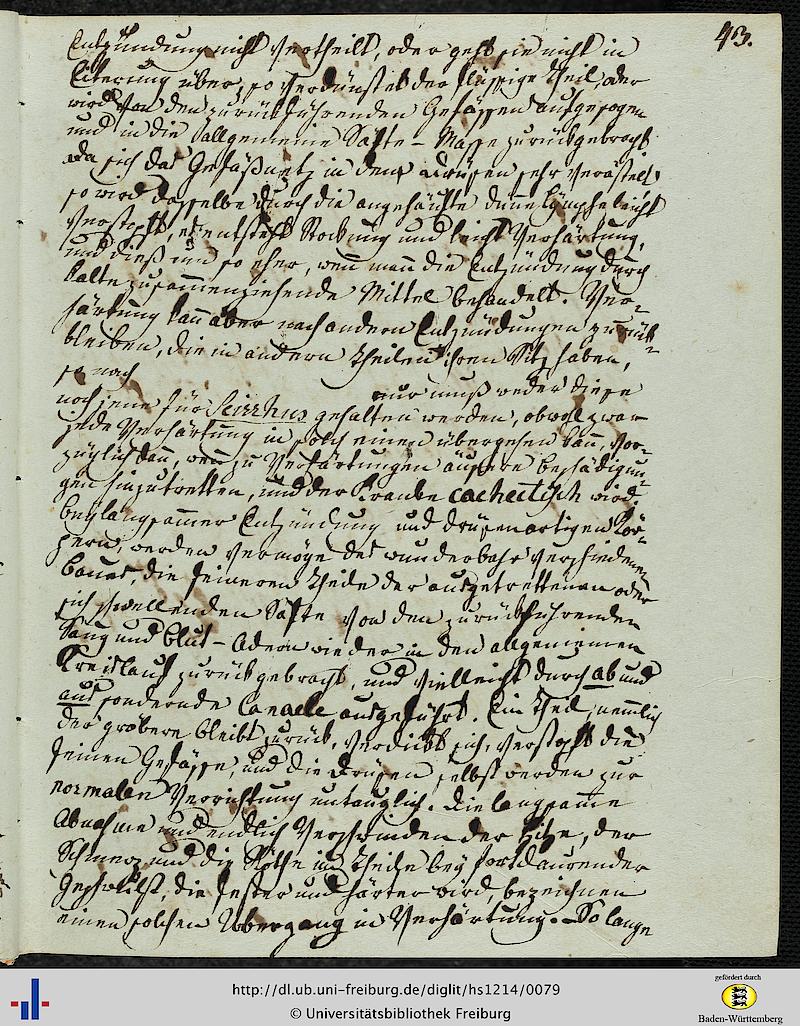 43.
Entzündung nicht vertheilt, oder geht sie nicht in
Eiterung über, so verdünstet der flüssige Theil, oder
wird von den zurückführenden Gefässen aufgesogen
und in die allgemeine Säfte-Masse zurückgebracht
da sich das Gefäßnetz in den Drüsen sehr verästelt,
so wird dasselbe durch die angehäufte dünne Lymphe leicht
verstopft, es entsteht Stockung und leicht Verhärtung,
und dieß um so eher, wenn man die Entzündung durch
kalte zusammenziehende Mittel behandelt. Ver-
härtung kann aber nach andern Entzündungen zurück-
bleiben, die in andern Theilen ihren Sitz haben,
so nach
nur muß weder diese
noch jene für Scirrhus gehalten werden, obwohl zwar
jede Verhärtung in solch einen übergehen kann, vor-
züglich dann, wenn zu Verhärtungen äußere Beschädigun-
gen hinzutretten, und der Kranke cachectisch wird.
Bey langsammer Entzündung und drüsenartigen Kör-
pern, werden vermöge des wunderbahr verschiedenen
Baues, die feineren Theile der ausgetrettenen oder
sich schwellenden Säfte von den zurückführenden
Saug und Blut-Adern wieder in den allgemeinen
Kreislauf zurückgebracht, und vielleicht durch ab und
aussondernde Canaele ausgeführt. Ein Theil, nemlich
der gröbere bleibt zurück, verdickt sich, verstopft die
feinen Gefässe, und die Drüsen selbst werden zur
normalen Verrichtung untauglich. Die langsamme
Abnahme und endlich Verschwinden der Hitze, der
Schmerz und die Röthe im Theile bey fortdaurender
Geschwulst, die fester und härter wird, bezeichnen
einen solchen Übergang in Verhärtung. So lange
http://dl.ub.uni-freiburg.de/diglit/hs1214/0079
© Universitätsbibliothek Freiburg
gefördert durch
Baden-Württemberg